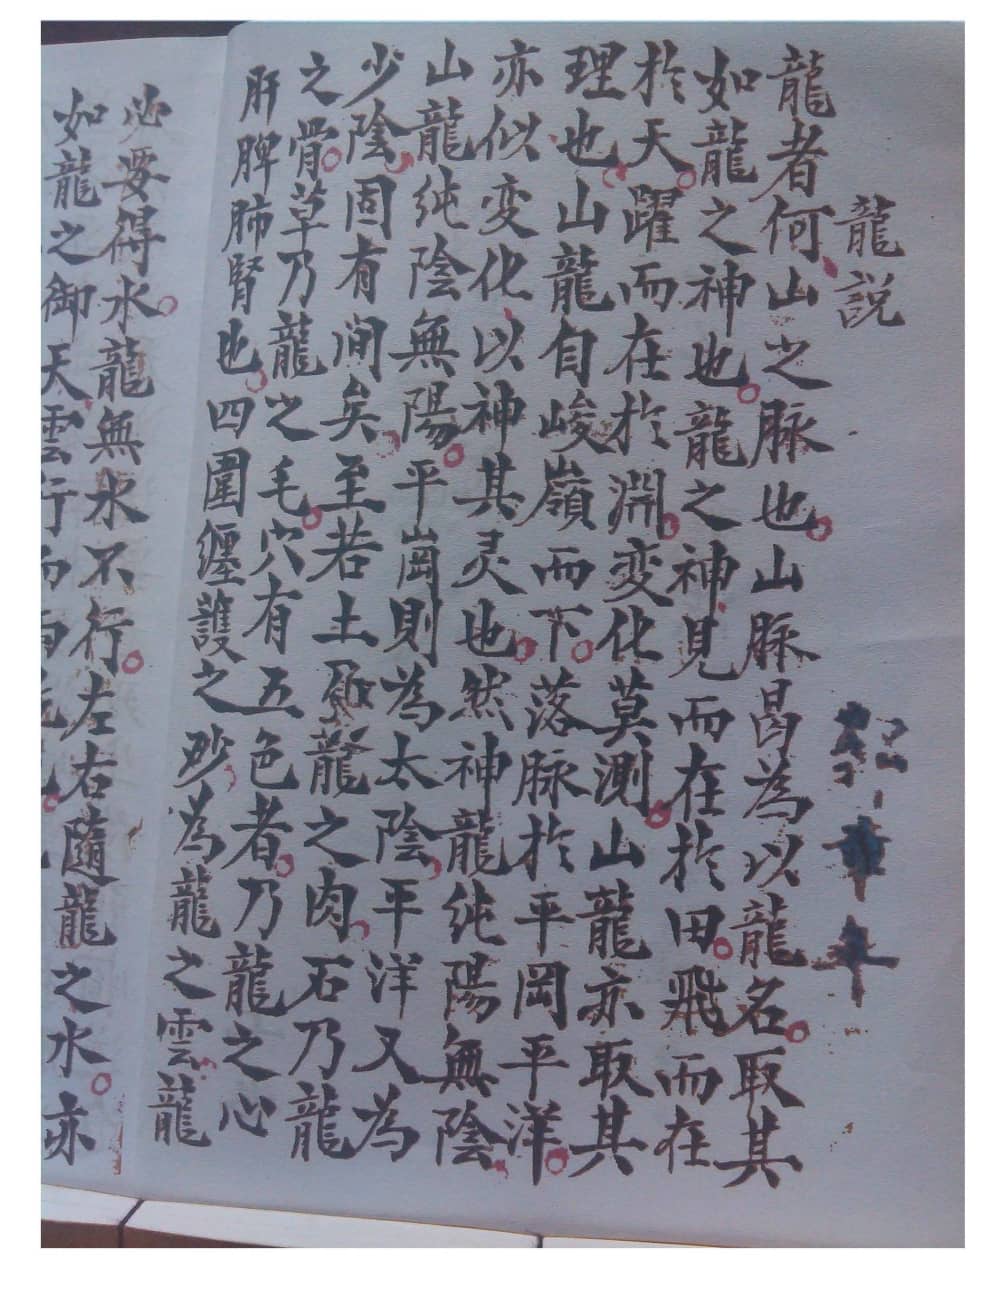 龍説
龍者何山之脉也山脉曷為以龍名取其
如龍之神也龍之神見而在於田飛而在
於天躍而在於淵变化莫測山龍亦取其
理也山龍自峻嶺而下落脉於平岡平洋
亦似变化以神其灵也然神龍純陽無陰
山龍純陰無陽平崗則為太陰平洋又為
少陰固有间矣至若土龍之肉石乃龍
之骨草乃龍之毛穴有五色者乃龍之心
肝脾肺腎也四圍纏護之妙為龍之雲龍
必要得水龍無水不行左右隨龍之水亦
如龍之御天雲行而雨